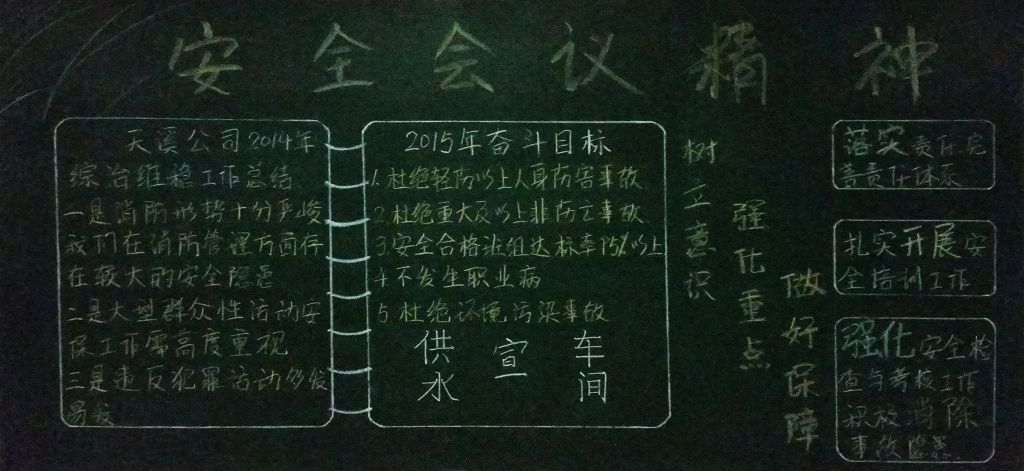 安全会议精神
天溪公司2014年
综治维稳工作总结
一是消防形势十分严峻
我们在消防管理方面存
在较大的安全隐患
二是大型群众性活动安
保工作需高度重视
三是违反犯罪活动多发
易发
2015年奋斗目标
1.杜绝轻伤以上人身伤害事故
2.杜绝重大及以上非伤亡事故
3.安全合格班组达标率15%以上
4.不发生职业病
5.杜绝环境污染事故
供水
宣
车间
树立意识
强化重点
做好保障
落实责任完
善责任体系
扎实开展安
全培训工作
强化安全检
查与考核工作
积极消除
事故隐患